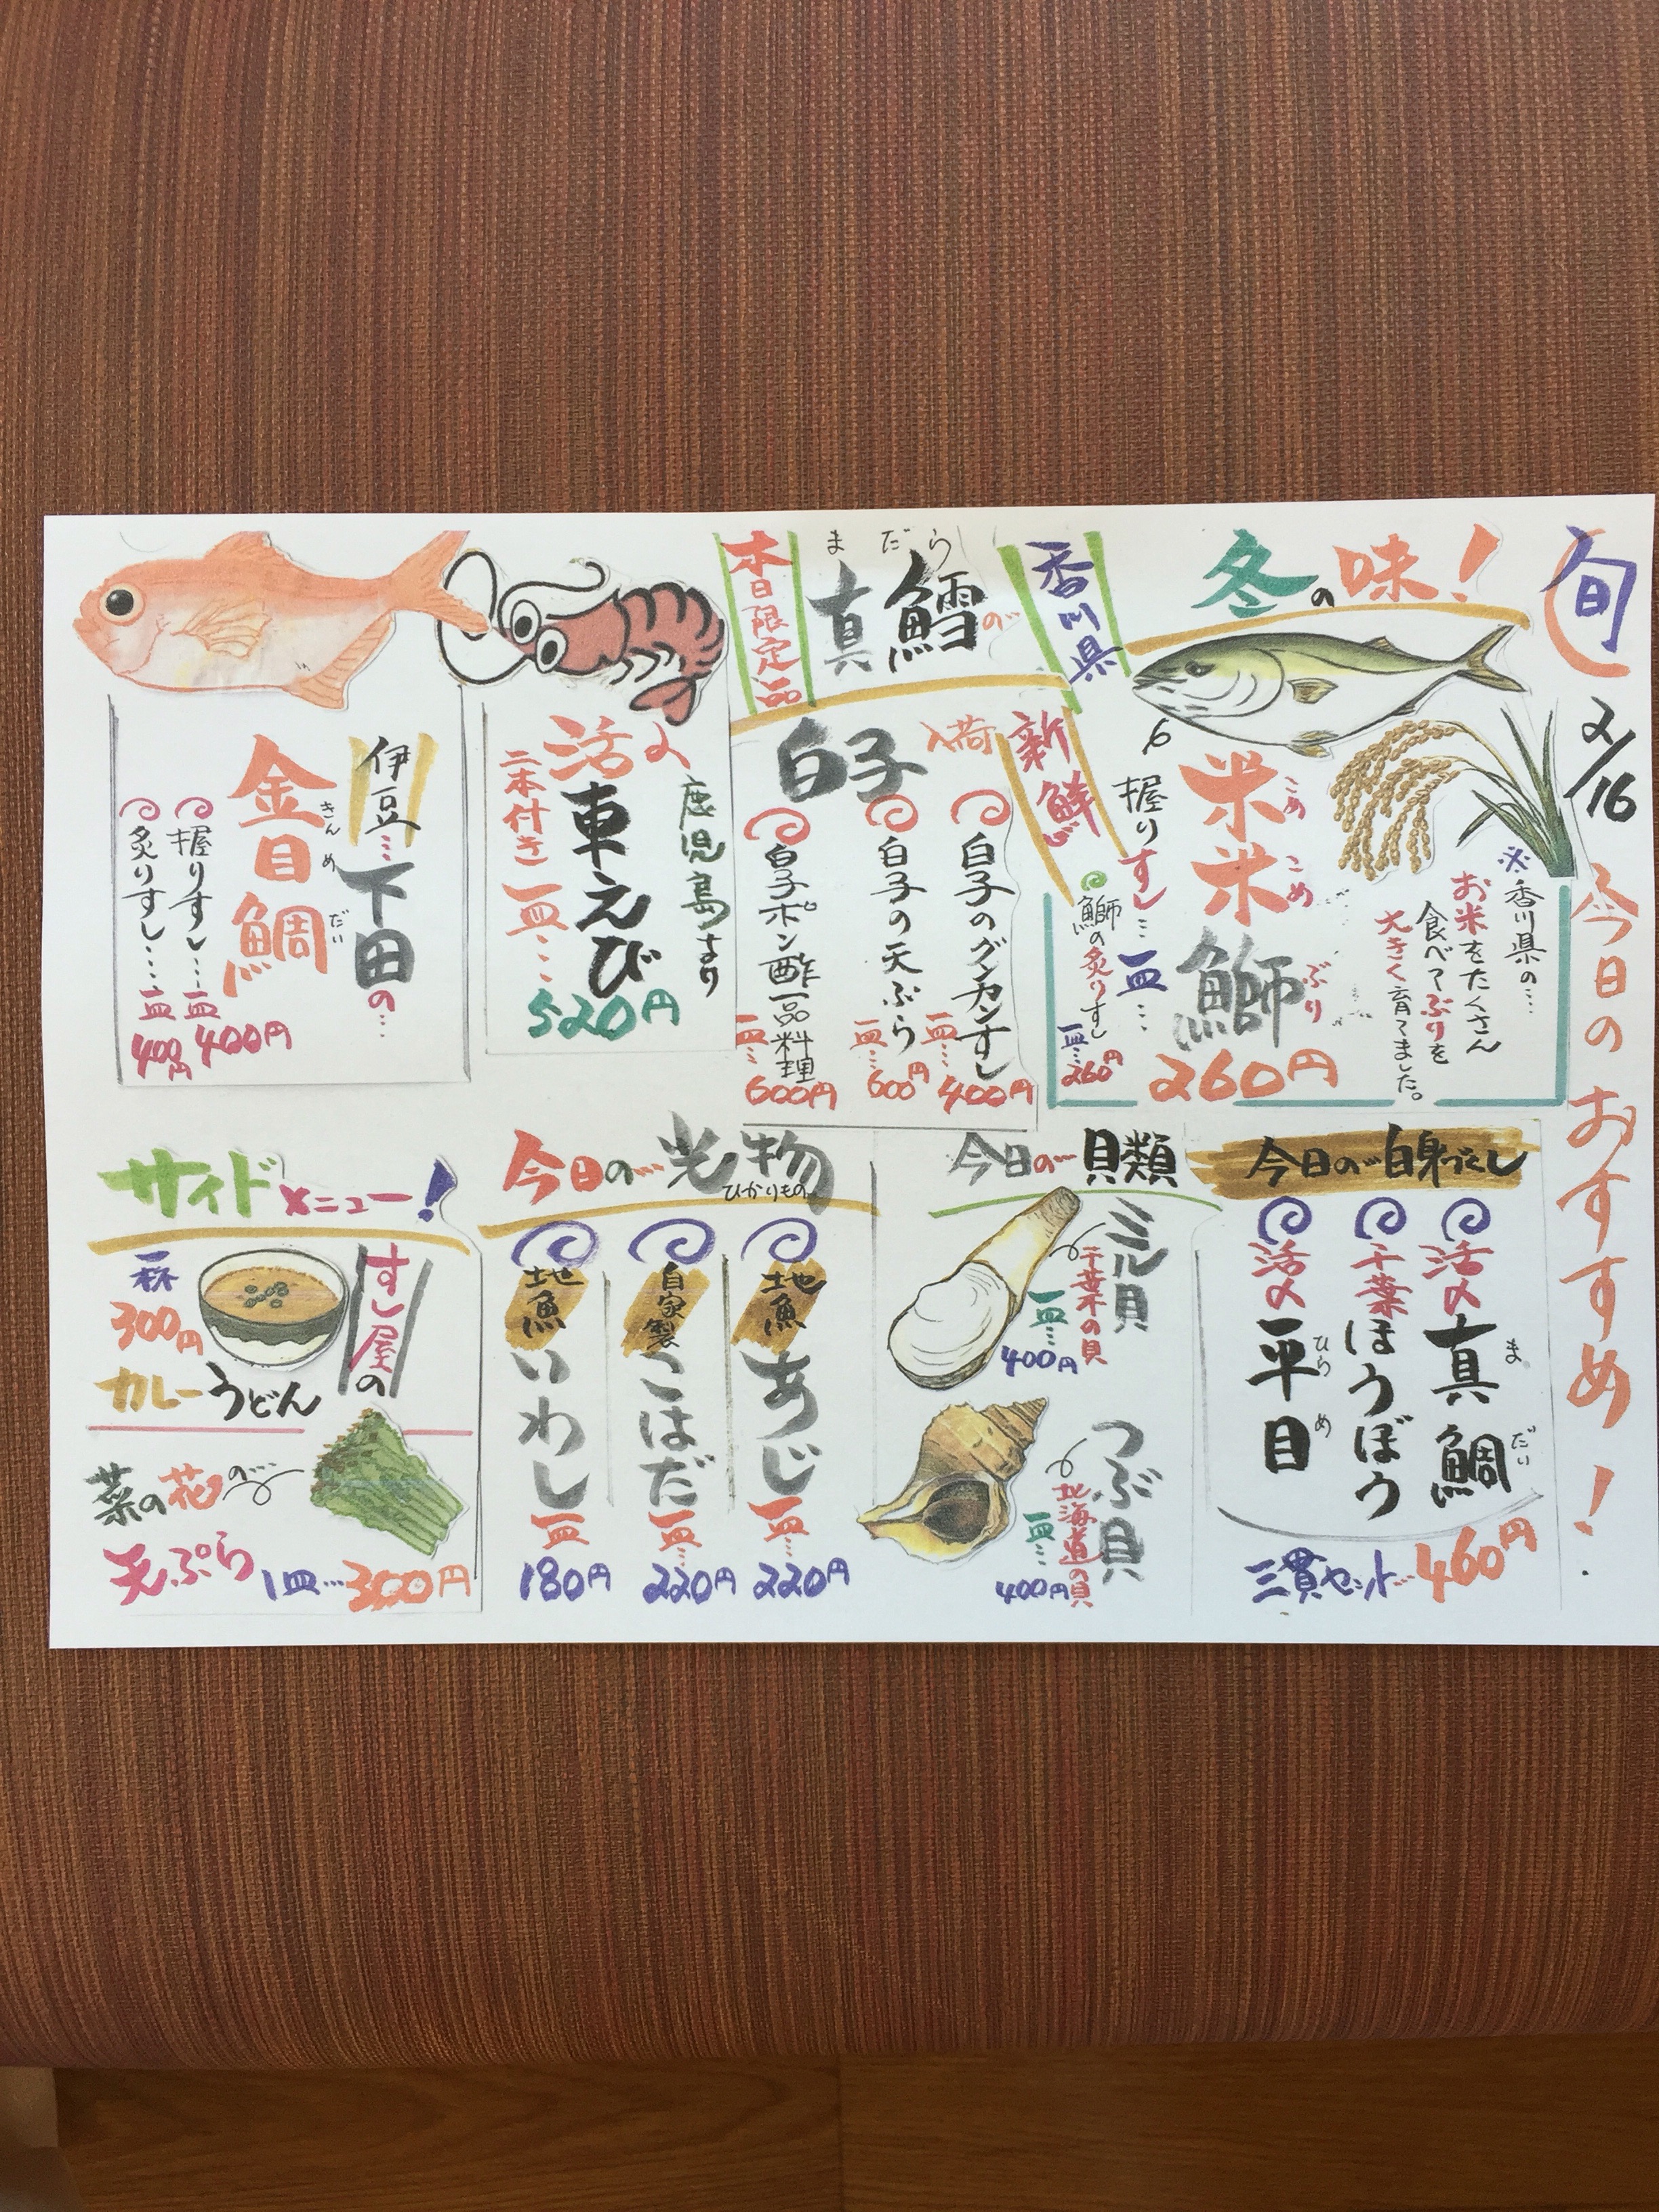 旬
2/16
今日のおすすめ！
冬の味！
香川県
新鮮
米米鰤
こめ
こめ
ぶり
260円
握りすし…一皿…
※香川県の…
お米をたくさん
食べてぶりを
大きく育てました。
鰤の炙りすし
一皿…260円
本日限定品
まだら
真鱈の…
白子入荷
白子のグンカンすし
一皿…400円
白子の天ぷら
一皿…600円
白子ポン酢一品料理
一皿…600円
鹿児島より
活〆
車えび
二本付き一皿…
520円
伊豆…下田の…
金目鯛
きんめだい
握りすし…一皿400円
炙りすし…一皿400円
今日の…白身づくし
活〆真鯛
まだい
千葉ほうぼう
活〆平目
ひらめ
三貫セット…460円
今日の…貝類
ミル貝
千葉木の貝
一皿…400円
つぶ貝
北海道の貝
一皿…400円
今日の…光物
ひかりもの
地魚
あじ
一皿…220円
自家製
こはだ
一皿…220円
地魚
いわし
一皿180円
サイドメニュー！
すし屋の
カレーうどん
一杯
300円
菜の花の…
天ぷら
1皿…300円